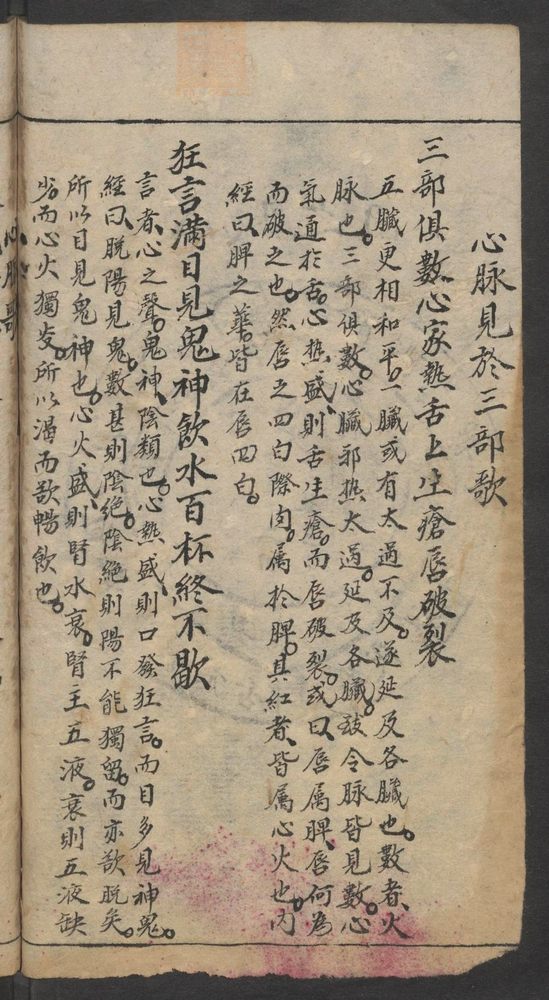 心脉見於三部歌
三部俱數心家熱舌上生瘡唇破裂
五臟更相和平一臟或有太過不及遂延及各臟也數者火
脉也三部俱數心臟邪熱太過延及各臟致令脉皆見數心
氣通於舌心熱盛則舌生瘡而唇破裂或曰唇属脾唇何為
而破之也然唇之四白際肉属於脾其紅者皆属心火也内
經曰脾之華皆在唇四白
狂言滿目見鬼神飲水百杯終不歇
言者心之聲鬼神陰類也心熱盛則口發狂言而目多見神鬼
經曰脱陽見鬼數甚則陰絶陰絶則陽不能獨留而亦欲脱矣
所以目見鬼神也心火盛則腎水衰腎主五液衰則五液缺
少而心火獨炎所以渴而欲暢飲也